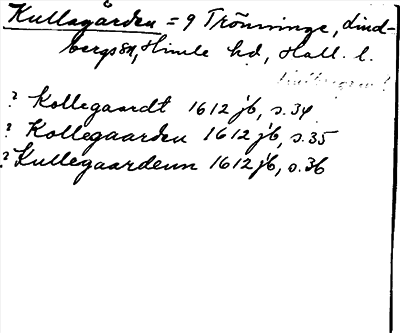 Kullagården = 9 Trönninge, Lind-
bergs sn, Himle hd, Hall. l.
? Kollegaardt 1612 jb, s. 34
? Kollegaarden 1612 jb, s. 35
? Kullegaardenn 1612 jb, s. 36